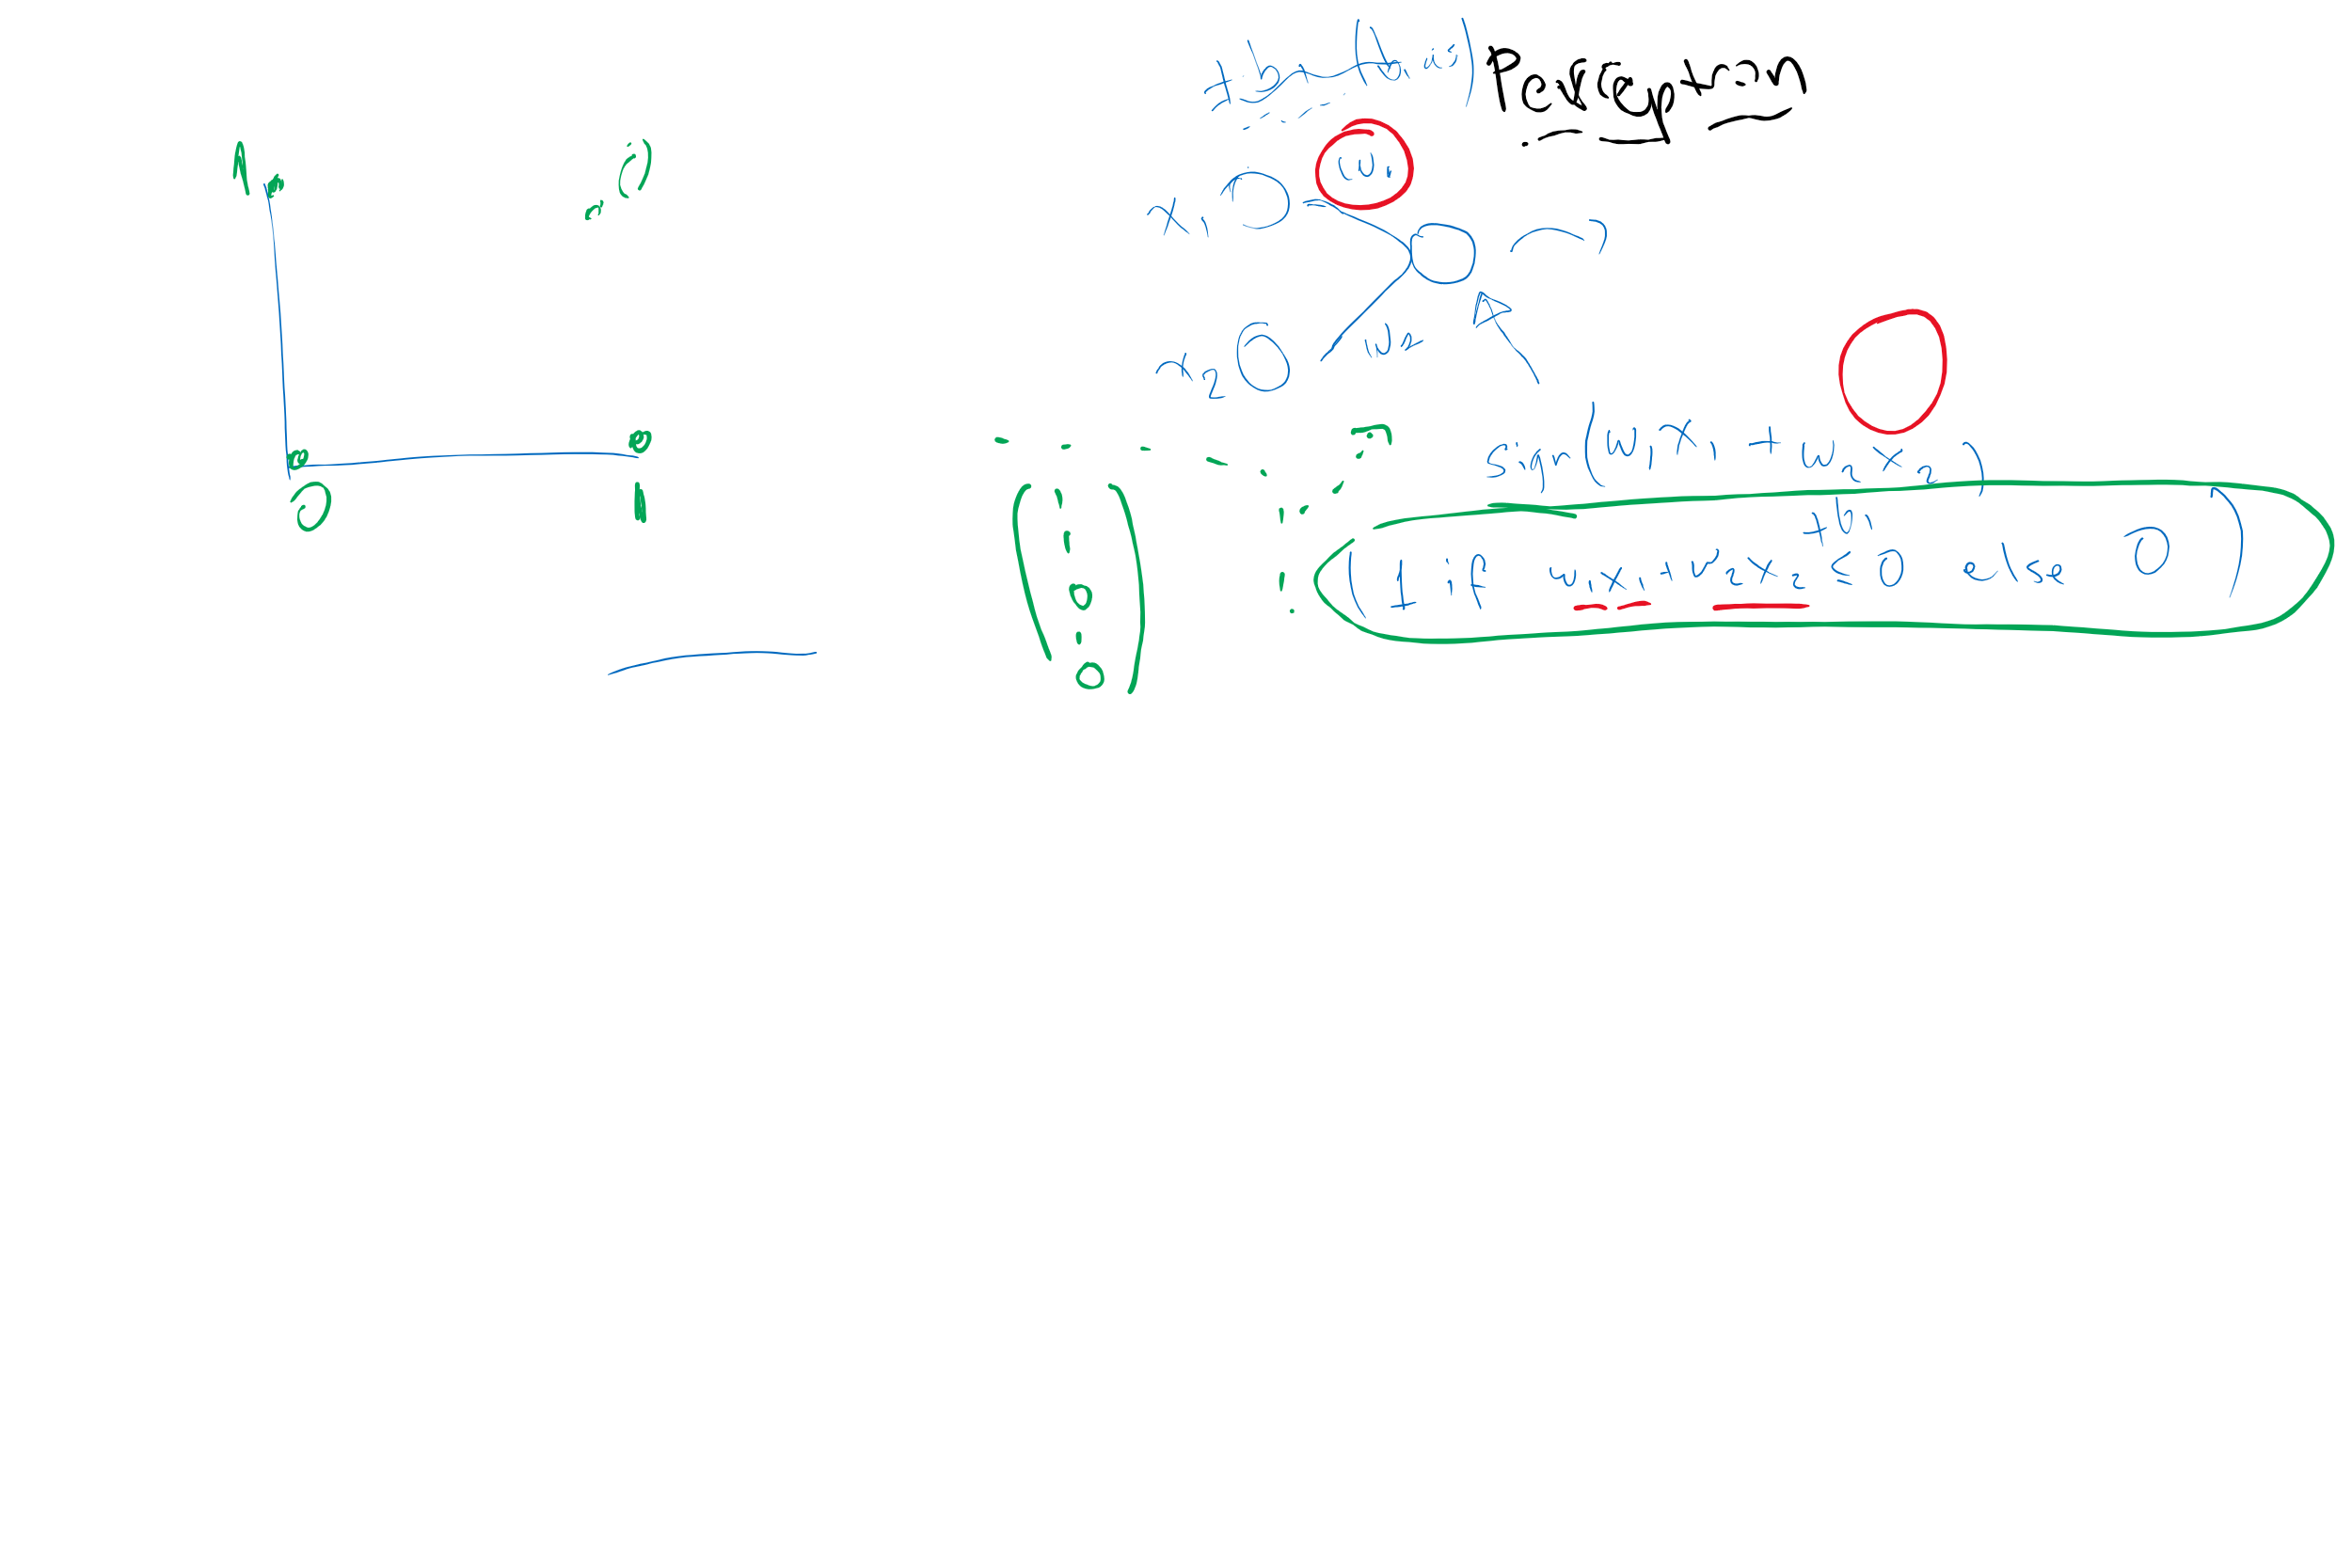 +b (bias)
Perceptron
1
x₁ w₁
x₂ w₂
0 1
sign(w₁x₁ + w₂x₂)
+b₁
(1 if w₁x₁ + w₂x₂ ≤ 0 else 0)
1
1
0
0